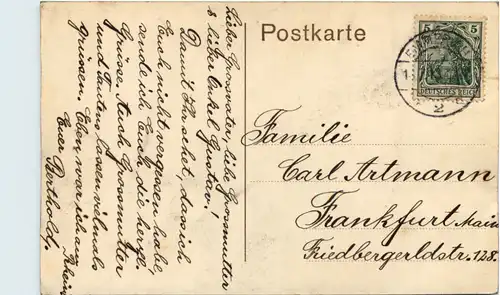 Postkarte
5 5
DEUTSCHES REICH
2
Familie
Carl Artmann
Frankfurt Main
Friedbergerldstr. 128.
Lieber Grossvater, liebe Grossmutter
& lieber Onkel Gustav!
Damit Ihr sehet, dass ich
Euch nicht vergessen habe,
sende ich Euch die herzl.
Grüsse. Auch Grossmutter
und Tanten lassen vielmals
grüssen. Eben war ich am
Rhein
Euer Berthold.